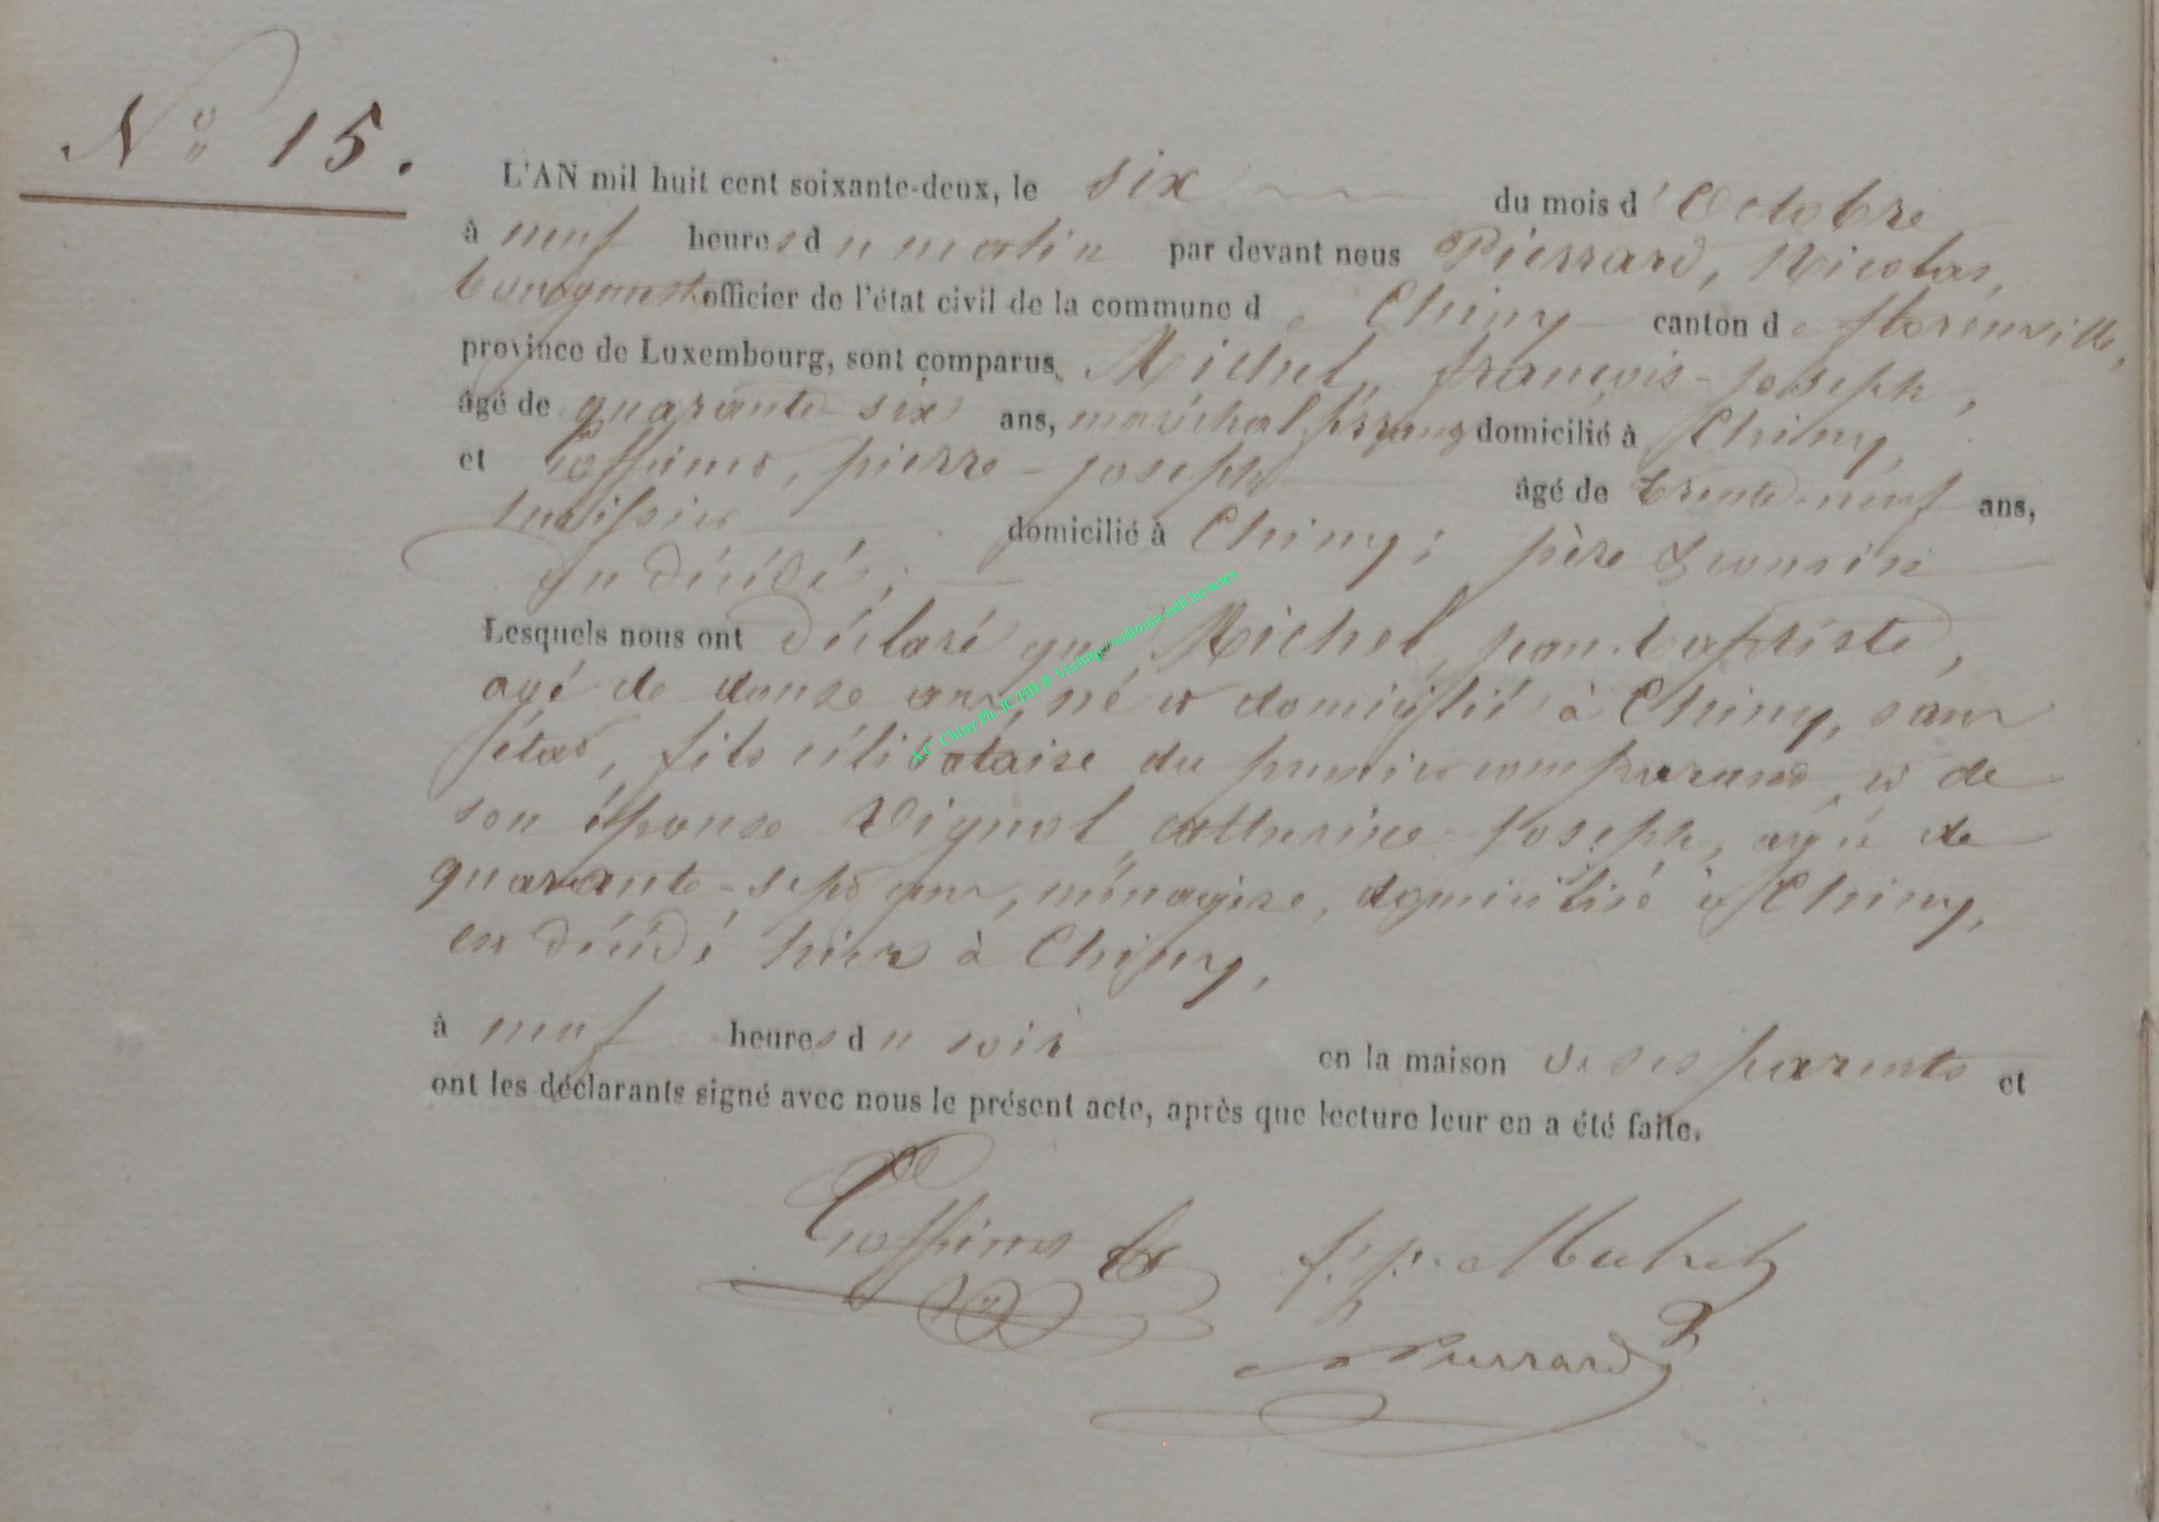 N° 15.
L'AN mil huit cent soixante-deux, le six du mois d'Octobre
à neuf heures du matin par devant nous Pierrard, Nicolas,
Bourgmestre officier de l'état civil de la commune de Chiny canton de florenville,
province de Luxembourg, sont comparus Michel, françois-joseph,
âgé de quarante-six ans, maréchal ferrant domicilié à Chiny,
et Goffinet, pierre-joseph âgé de trente-neuf ans,
domicilié à Chiny; père & cousin
du décédé;
Lesquels nous ont déclaré que Michel, jean-baptiste,
agé de douze ans, né et domicilié à Chiny, sans
état, fils célibataire du premier comparant, et de
son épouse Vignol, catherine-joseph, agée de
quarante-sept ans, ménagère, domiciliée à Chiny,
est décédé hier à Chiny,
à neuf heures du soir en la maison de ses parents et
ont les déclarants signé avec nous le présent acte, après que lecture leur en a été faite.
Goffinet f.j. Michel
Pierrard